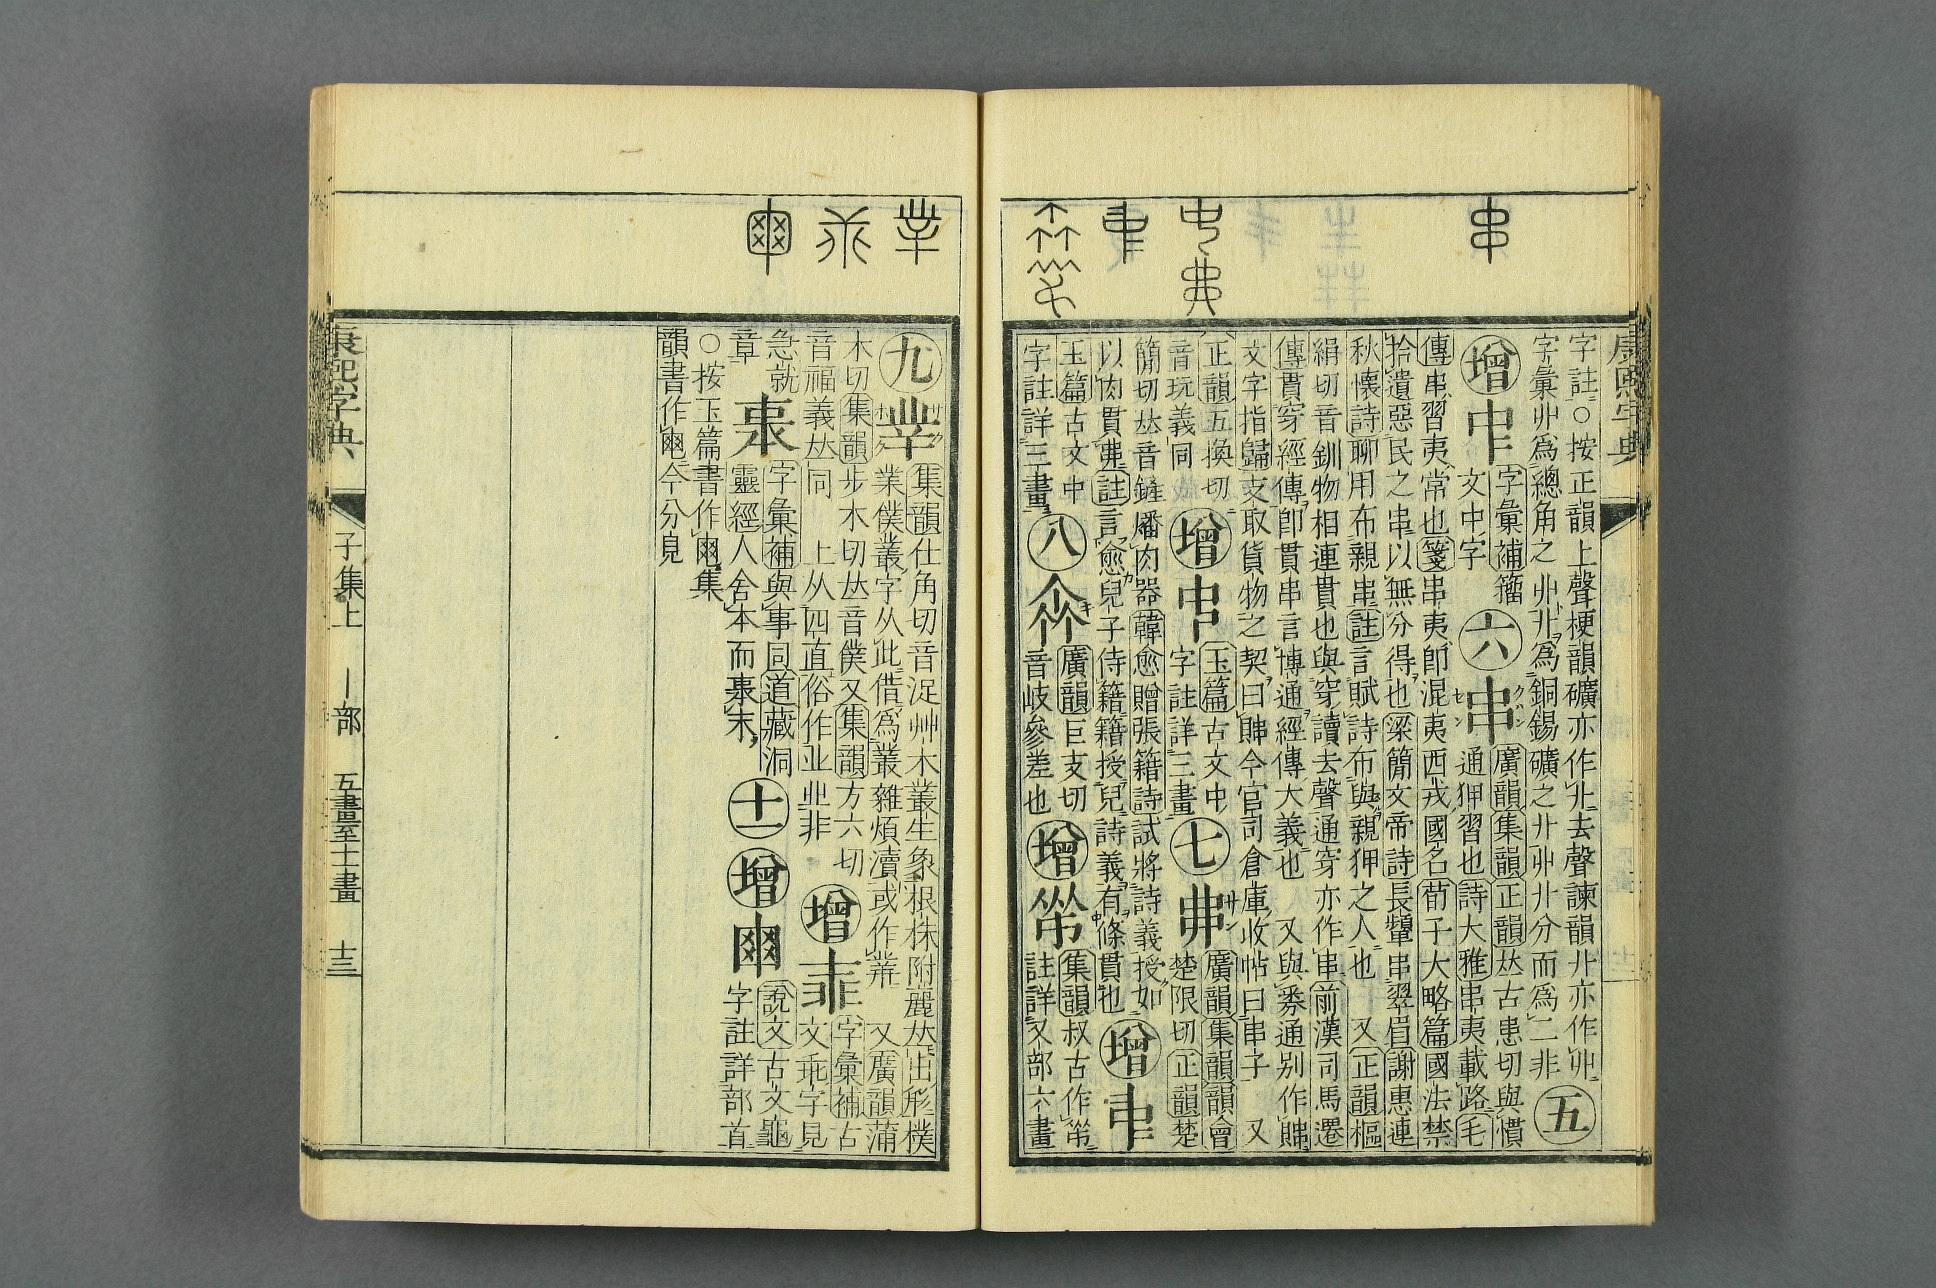 字註○按正韻上聲梗韻礦亦作卝去聲諫韻卝亦作丱
字彙丱爲總角之丱卝爲銅錫礦之卝丱卝分而爲二非
五
增
字彙補籒
文中字
六
串
廣韻集韻正韻𠀤古患切與慣
通狎習也詩大雅串夷載路毛
傳串習夷常也箋串夷卽混夷西戎國名荀子大略篇國法禁
拾遺惡民之串以無分得也梁簡文帝詩長顰串翠眉謝惠連
秋懷詩聊用布親串註言賦詩布與親狎之人也 又正韻樞
絹切音釧物相連貫也與穿讀去聲通穿亦作串前漢司馬遷
傳貫穿經傳卽貫串言博通經傳大義也 又與㢧通别作賗
文字指歸支取貨物之契曰賗今官司倉庫收帖曰串子 又
正韻五換切
音玩義同
增
玉篇古文中
字註詳三畫
七
丳
廣韻集韻韻會
楚限切正韻楚
簡切𠀤音鏟燔肉器韓愈贈張籍詩試將詩義授如
以肉貫丳註言愈兒子侍籍籍授兒詩義有條貫也
增
玉篇古文中
字註詳三畫
八
廣韻巨支切
音岐參差也
增
集韻叔古作
註詳又部六畫
九
丵
集韻仕角切音浞艸木叢生象根株附麗𠀤出形樸
業僕叢字从此借爲叢雜煩瀆或作 又廣韻蒲
木切集韻步木切𠀤音僕又集韻方六切
音福義𠀤同 上从四直俗作业丱非
增
字彙補古
文乖字見
急就
章
字彙補與事同道藏洞
靈經人舍本而事末
十一
增
說文古文龜
字註詳部首
○按玉篇書作 集
韻書作 今分見
康熙字典
子集上 丨部 五畫至十一畫 十三